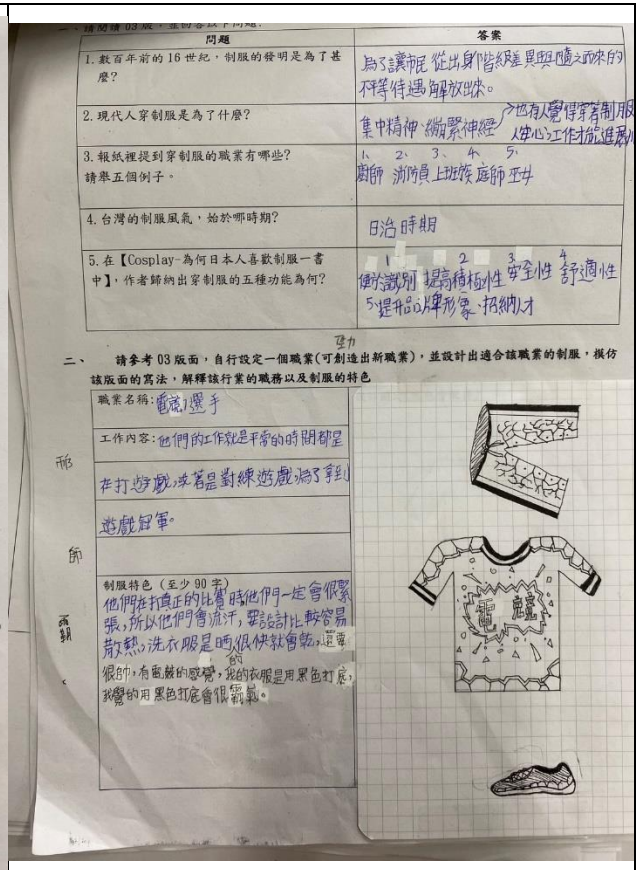 一、請閱讀 03 版，並回答以下問題：
問題
答案
1. 數百年前的 16 世紀，制服的發明是為了甚
麼？
為了讓市民從出身、階級差異與隨之而來的
不平等待遇解放出來。
2. 現代人穿制服是為了什麼？
集中精神、繃緊神經
也有人覺得穿著制服
人安心,工作才能進展
3. 報紙裡提到穿制服的職業有哪些？
請舉五個例子。
1、 2、 3、 4、 5、
廚師 消防員 上班族 庭師 巫女
4. 台灣的制服風氣，始於哪時期？
日治時期
5. 在【Cosplay-為何日本人喜歡制服一書
中】，作者歸納出穿制服的五種功能為何？
1 2 3 4
便於識別 提高積極性 安全性 舒適性
5、提升品牌形象、招納人才
二、 請參考 03 版面，自行設定一個職業(可創造出新職業)，並設計出適合該職業的制服，模仿
該版面的寫法，解釋該行業的職務以及制服的特色
職業名稱：電競選手
工作內容：他們的工作就是平常的時間都是
在打遊戲，或者是對練遊戲，為了拿到
遊戲冠軍。
制服特色（至少 90 字）
他們在打真正的比賽時他們一定會很緊
張，所以他們會流汗，要設計比較容易
散熱，洗衣服是晒很快就會乾，還要
很帥，有威嚴的感覺，我的衣服是用黑色打底，
我覺的用黑色打底會很霸氣。
電 競
師